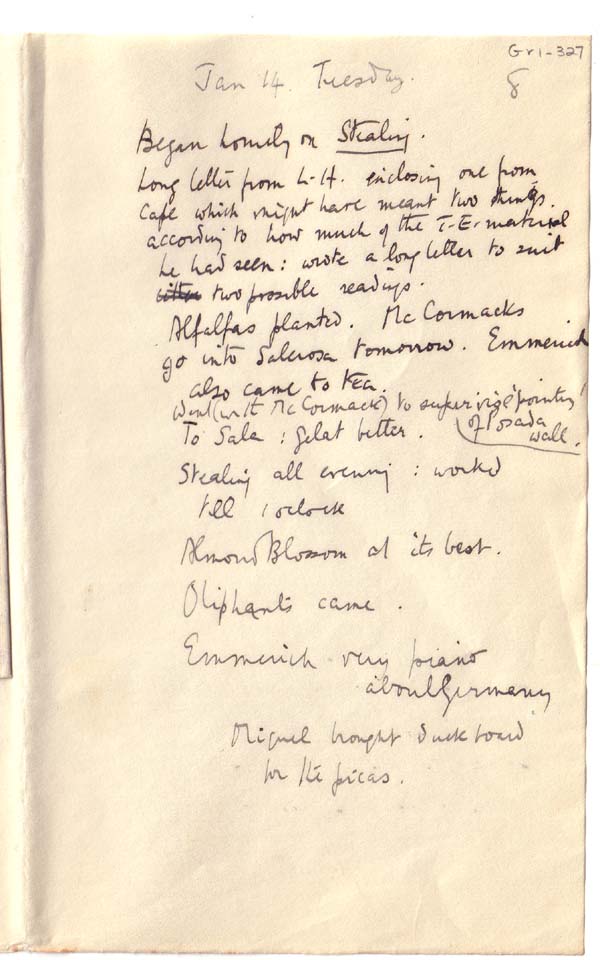 Gr1-327
Jan 14. Tuesday.
8
Began homily on Stealing.
Long letter from L-H. enclosing one from
Cape which might have meant two things.
according to how much of the T-E-material
he had seen: wrote a long letter to suit
two possible readings.
Alfalfas planted. McCormacks
go into Salerosa tomorrow. Emmerich
also came to tea.
Went (with McCormack) to supervise 'pointing'
of Posada
wall.
To Sala: Gelat better.
Stealing all evening: worked
till 1 oclock
Almond Blossom at its best.
Oliphants came.
Emmerich very piano
about Germany
Miguel brought duckboard
for the picas.